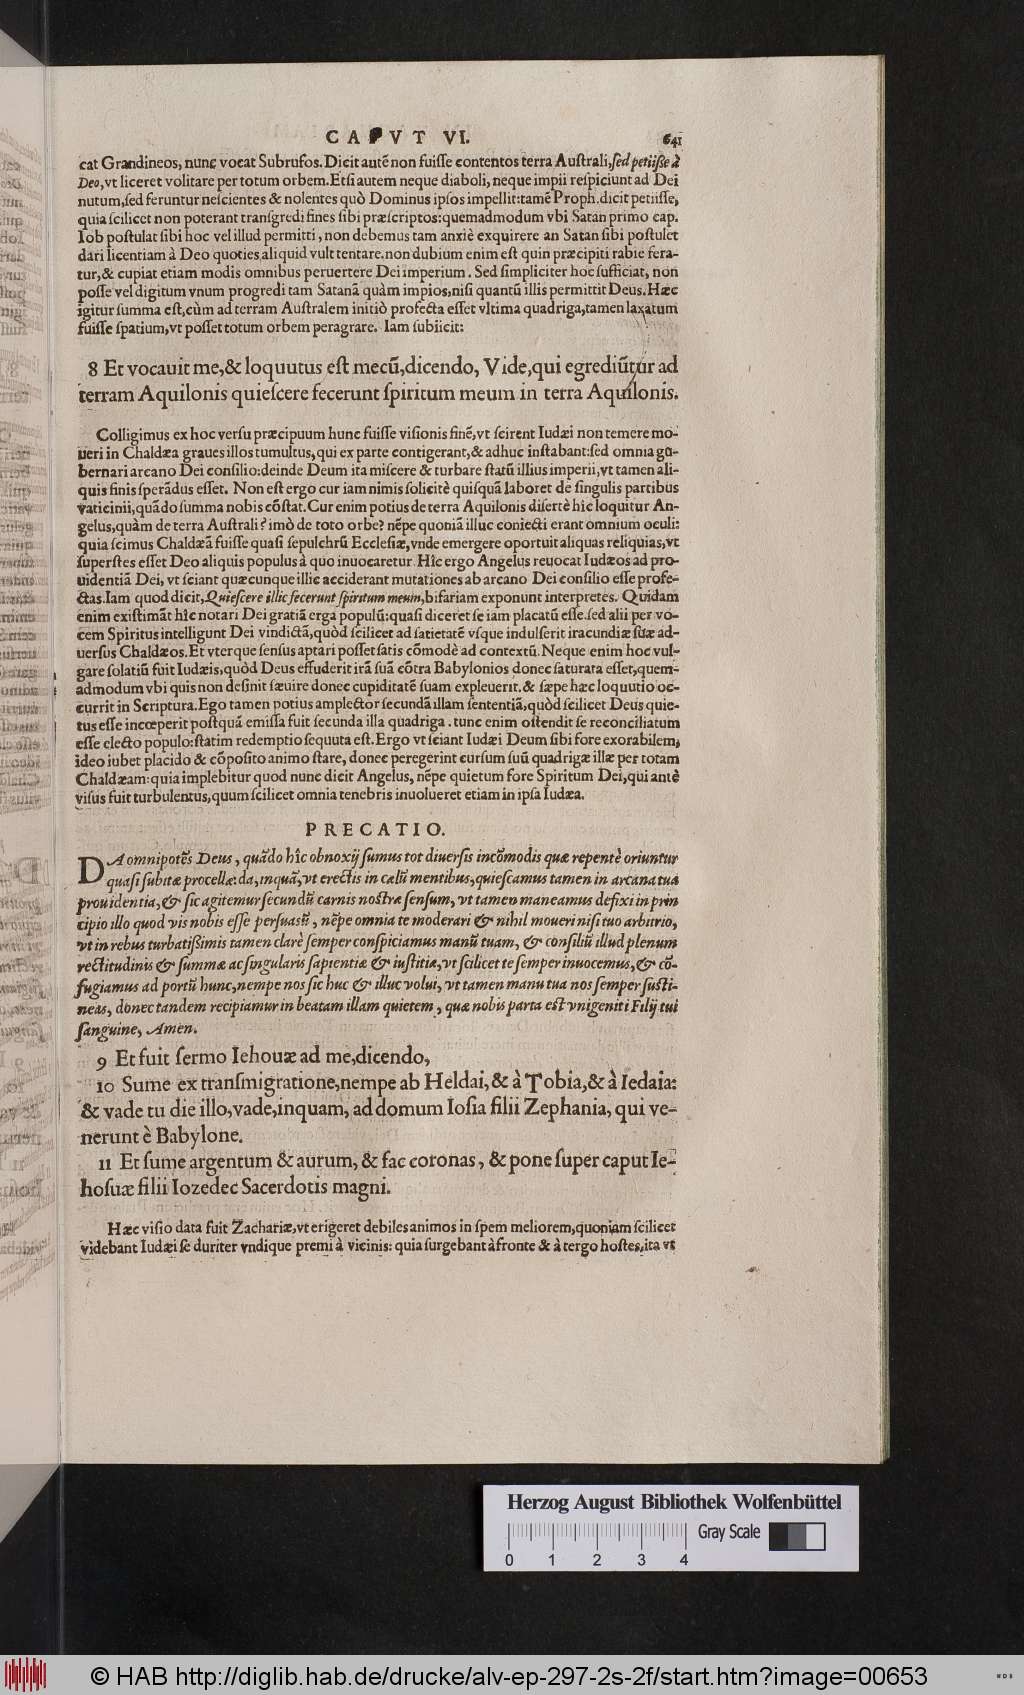 CAPVT VI. 641
cat Grandineos, nunc vocat Subrufos. Dicit autē non fuiſſe contentos terra Auſtrali, ſed petiiſſe à
Deo, vt liceret volitare per totum orbem. Etſi autem neque diaboli, neque impii reſpiciunt ad Dei
nutum, ſed feruntur neſcientes & nolentes quò Dominus ipſos impellit: tamē Proph. dicit petiiſſe,
quia ſcilicet non poterant tranſgredi fines ſibi præſcriptos: quemadmodum vbi Satan primo cap.
Iob poſtulat ſibi hoc vel illud permitti, non debemus tam anxiè exquirere an Satan ſibi poſtulet
dari licentiam à Deo quoties aliquid vult tentare. non dubium enim eſt quin præcipiti rabie fera-
tur, & cupiat etiam modis omnibus peruertere Dei imperium. Sed ſimpliciter hoc ſufficiat, non
poſſe vel digitum vnum progredi tam Satanā quàm impios, niſi quantū illis permittit Deus. Hæc
igitur ſumma eſt, cùm ad terram Auſtralem initiò profecta eſſet vltima quadriga, tamen laxatum
fuiſſe ſpatium, vt poſſet totum orbem peragrare. Iam ſubiicit:
8 Et vocauit me, & loquutus eſt mecū, dicendo, Vide, qui egrediūtur ad
terram Aquilonis quieſcere fecerunt ſpiritum meum in terra Aquilonis.
Colligimus ex hoc verſu præcipuum hunc fuiſſe viſionis finē, vt ſcirent Iudæi non temere mo-
ueri in Chaldæa graues illos tumultus, qui ex parte contigerant, & adhuc inſtabant: ſed omnia gu-
bernari arcano Dei conſilio: deinde Deum ita miſcere & turbare ſtatū illius imperii, vt tamen ali-
quis finis ſperādus eſſet. Non eſt ergo cur iam nimis ſolicitè quiſquā laboret de ſingulis partibus
vaticinii, quādo ſumma nobis cōſtat. Cur enim potius de terra Aquilonis diſertè hîc loquitur An-
gelus, quàm de terra Auſtrali? imò de toto orbe? nēpe quoniā illuc coniecti erant omnium oculi:
quia ſcimus Chaldæā fuiſſe quaſi ſepulchrū Eccleſiæ, vnde emergere oportuit aliquas reliquias, vt
ſuperſtes eſſet Deo aliquis populus à quo inuocaretur. Hîc ergo Angelus reuocat Iudæos ad pro-
uidentiā Dei, vt ſciant quæcunque illic acciderant mutationes ab arcano Dei conſilio eſſe profe-
ctas. Iam quod dicit, Quieſcere illic fecerunt ſpiritum meum, bifariam exponunt interpretes. Quidam
enim exiſtimāt hîc notari Dei gratiā erga populū: quaſi diceret ſe iam placatū eſſe. ſed alii per vo-
cem Spiritus intelligunt Dei vindictā, quòd ſcilicet ad ſatietatē vſque indulſerit iracundiæ ſuæ ad-
uerſus Chaldæos. Et vterque ſenſus aptari poſſet ſatis cōmodè ad contextū. Neque enim hoc vul-
gare ſolatiū fuit Iudæis, quòd Deus effuderit irā ſuā cōtra Babylonios donec ſaturata eſſet, quem-
admodum vbi quis non deſinit ſæuire donec cupiditatē ſuam expleuerit. & ſæpe hæc loquutio oc-
currit in Scriptura. Ego tamen potius amplector ſecundā illam ſententiā, quòd ſcilicet Deus quie-
tus eſſe incœperit poſtquā emiſſa fuit ſecunda illa quadriga. tunc enim oſtendit ſe reconciliatum
eſſe electo populo: ſtatim redemptio ſequuta eſt. Ergo vt ſciant Iudæi Deum ſibi fore exorabilem,
ideo iubet placido & cōpoſito animo ſtare, donec peregerint curſum ſuū quadrigæ illæ per totam
Chaldæam: quia implebitur quod nunc dicit Angelus, nēpe quietum fore Spiritum Dei, qui antè
viſus fuit turbulentus, quum ſcilicet omnia tenebris inuolueret etiam in ipſa Iudæa.
PRECATIO.
DA omnipotēs Deus, quādo hîc obnoxij ſumus tot diuerſis incōmodis quæ repentè oriuntur
quaſi ſubitæ procellæ: da, inquā, vt erectis in cælū mentibus, quieſcamus tamen in arcana tua
prouidentia, & ſic agitemur ſecundū carnis noſtræ ſenſum, vt tamen maneamus defixi in prin
cipio illo quod vis nobis eſſe perſuasū, nēpe omnia te moderari & nihil moueri niſi tuo arbitrio,
vt in rebus turbatiſſimis tamen clarè ſemper conſpiciamus manū tuam, & conſiliū illud plenum
rectitudinis & ſummæ ac ſingularis ſapientiæ & iuſtitiæ, vt ſcilicet te ſemper inuocemus, & cō-
fugiamus ad portū hunc, nempe nos ſic huc & illuc volui, vt tamen manu tua nos ſemper ſuſti-
neas, donec tandem recipiamur in beatam illam quietem, quæ nobis parta eſt vnigeniti Filij tui
ſanguine, Amen.
9 Et fuit ſermo Iehouæ ad me, dicendo,
10 Sume ex tranſmigratione, nempe ab Heldai, & à Tobia, & à Iedaia:
& vade tu die illo, vade, inquam, ad domum Ioſia filii Zephania, qui ve-
nerunt è Babylone.
11 Et ſume argentum & aurum, & fac coronas, & pone ſuper caput Ie-
hoſuæ filii Iozedec Sacerdotis magni.
Hæc viſio data fuit Zachariæ, vt erigeret debiles animos in ſpem meliorem, quoniam ſcilicet
videbant Iudæi ſe duriter vndique premi à vicinis: quia ſurgebant à fronte & à tergo hoſtes, ita vt
Herzog August Bibliothek Wolfenbüttel
Gray Scale
0 1 2 3 4
© HAB http://diglib.hab.de/drucke/alv-ep-297-2s-2f/start.htm?image=00653